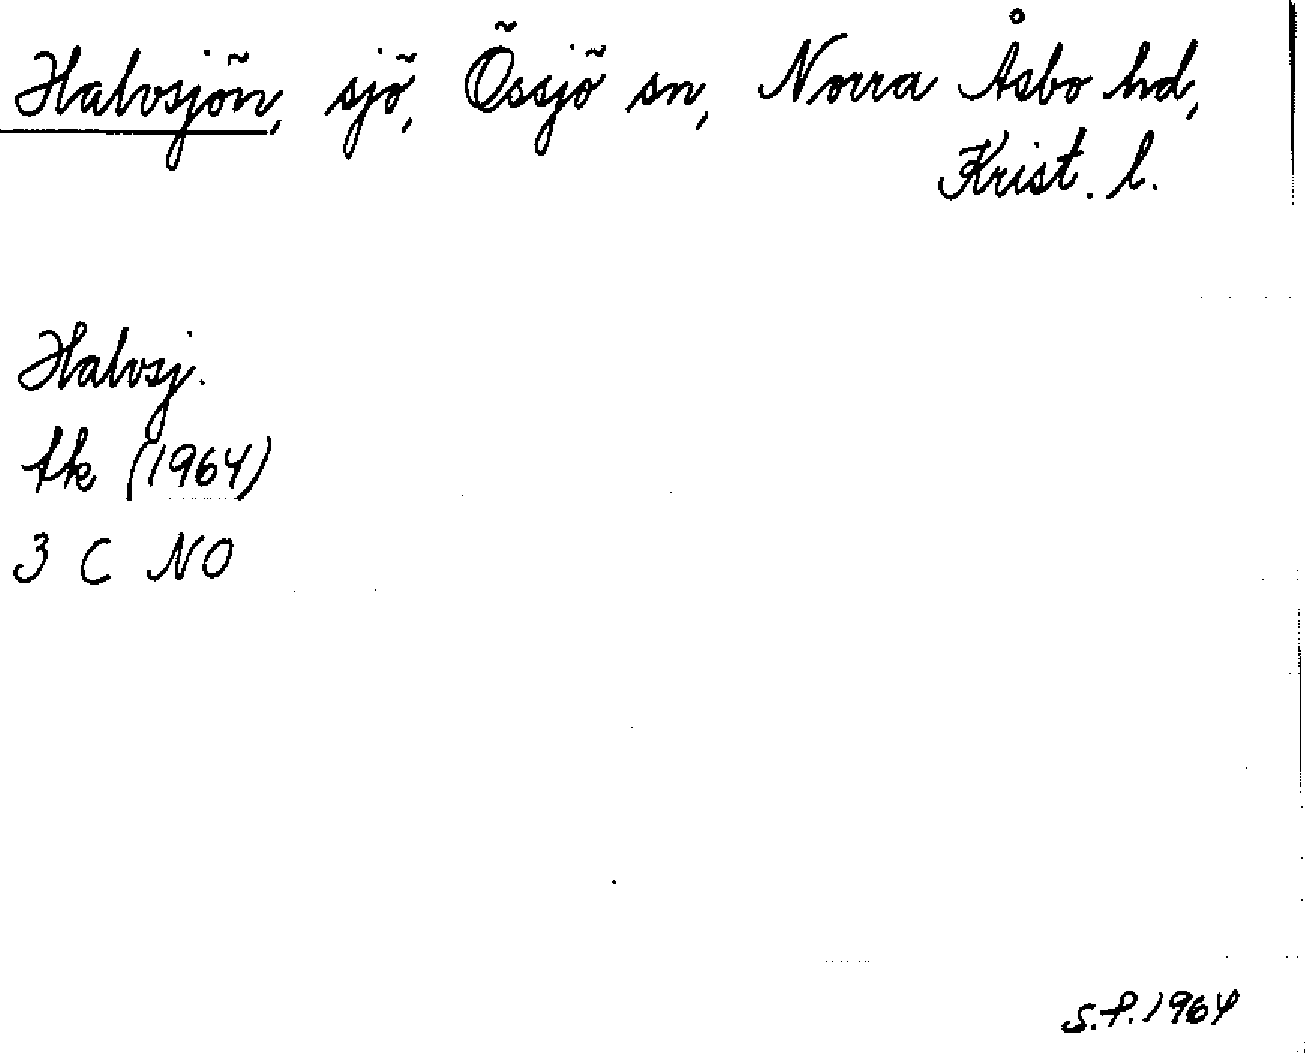 Halvsjön, sjö, Össjö sn, Norra Åsbo hd,
Krist. l.
Halvsj.
tk (1964)
3 C NO
S.F. 1964